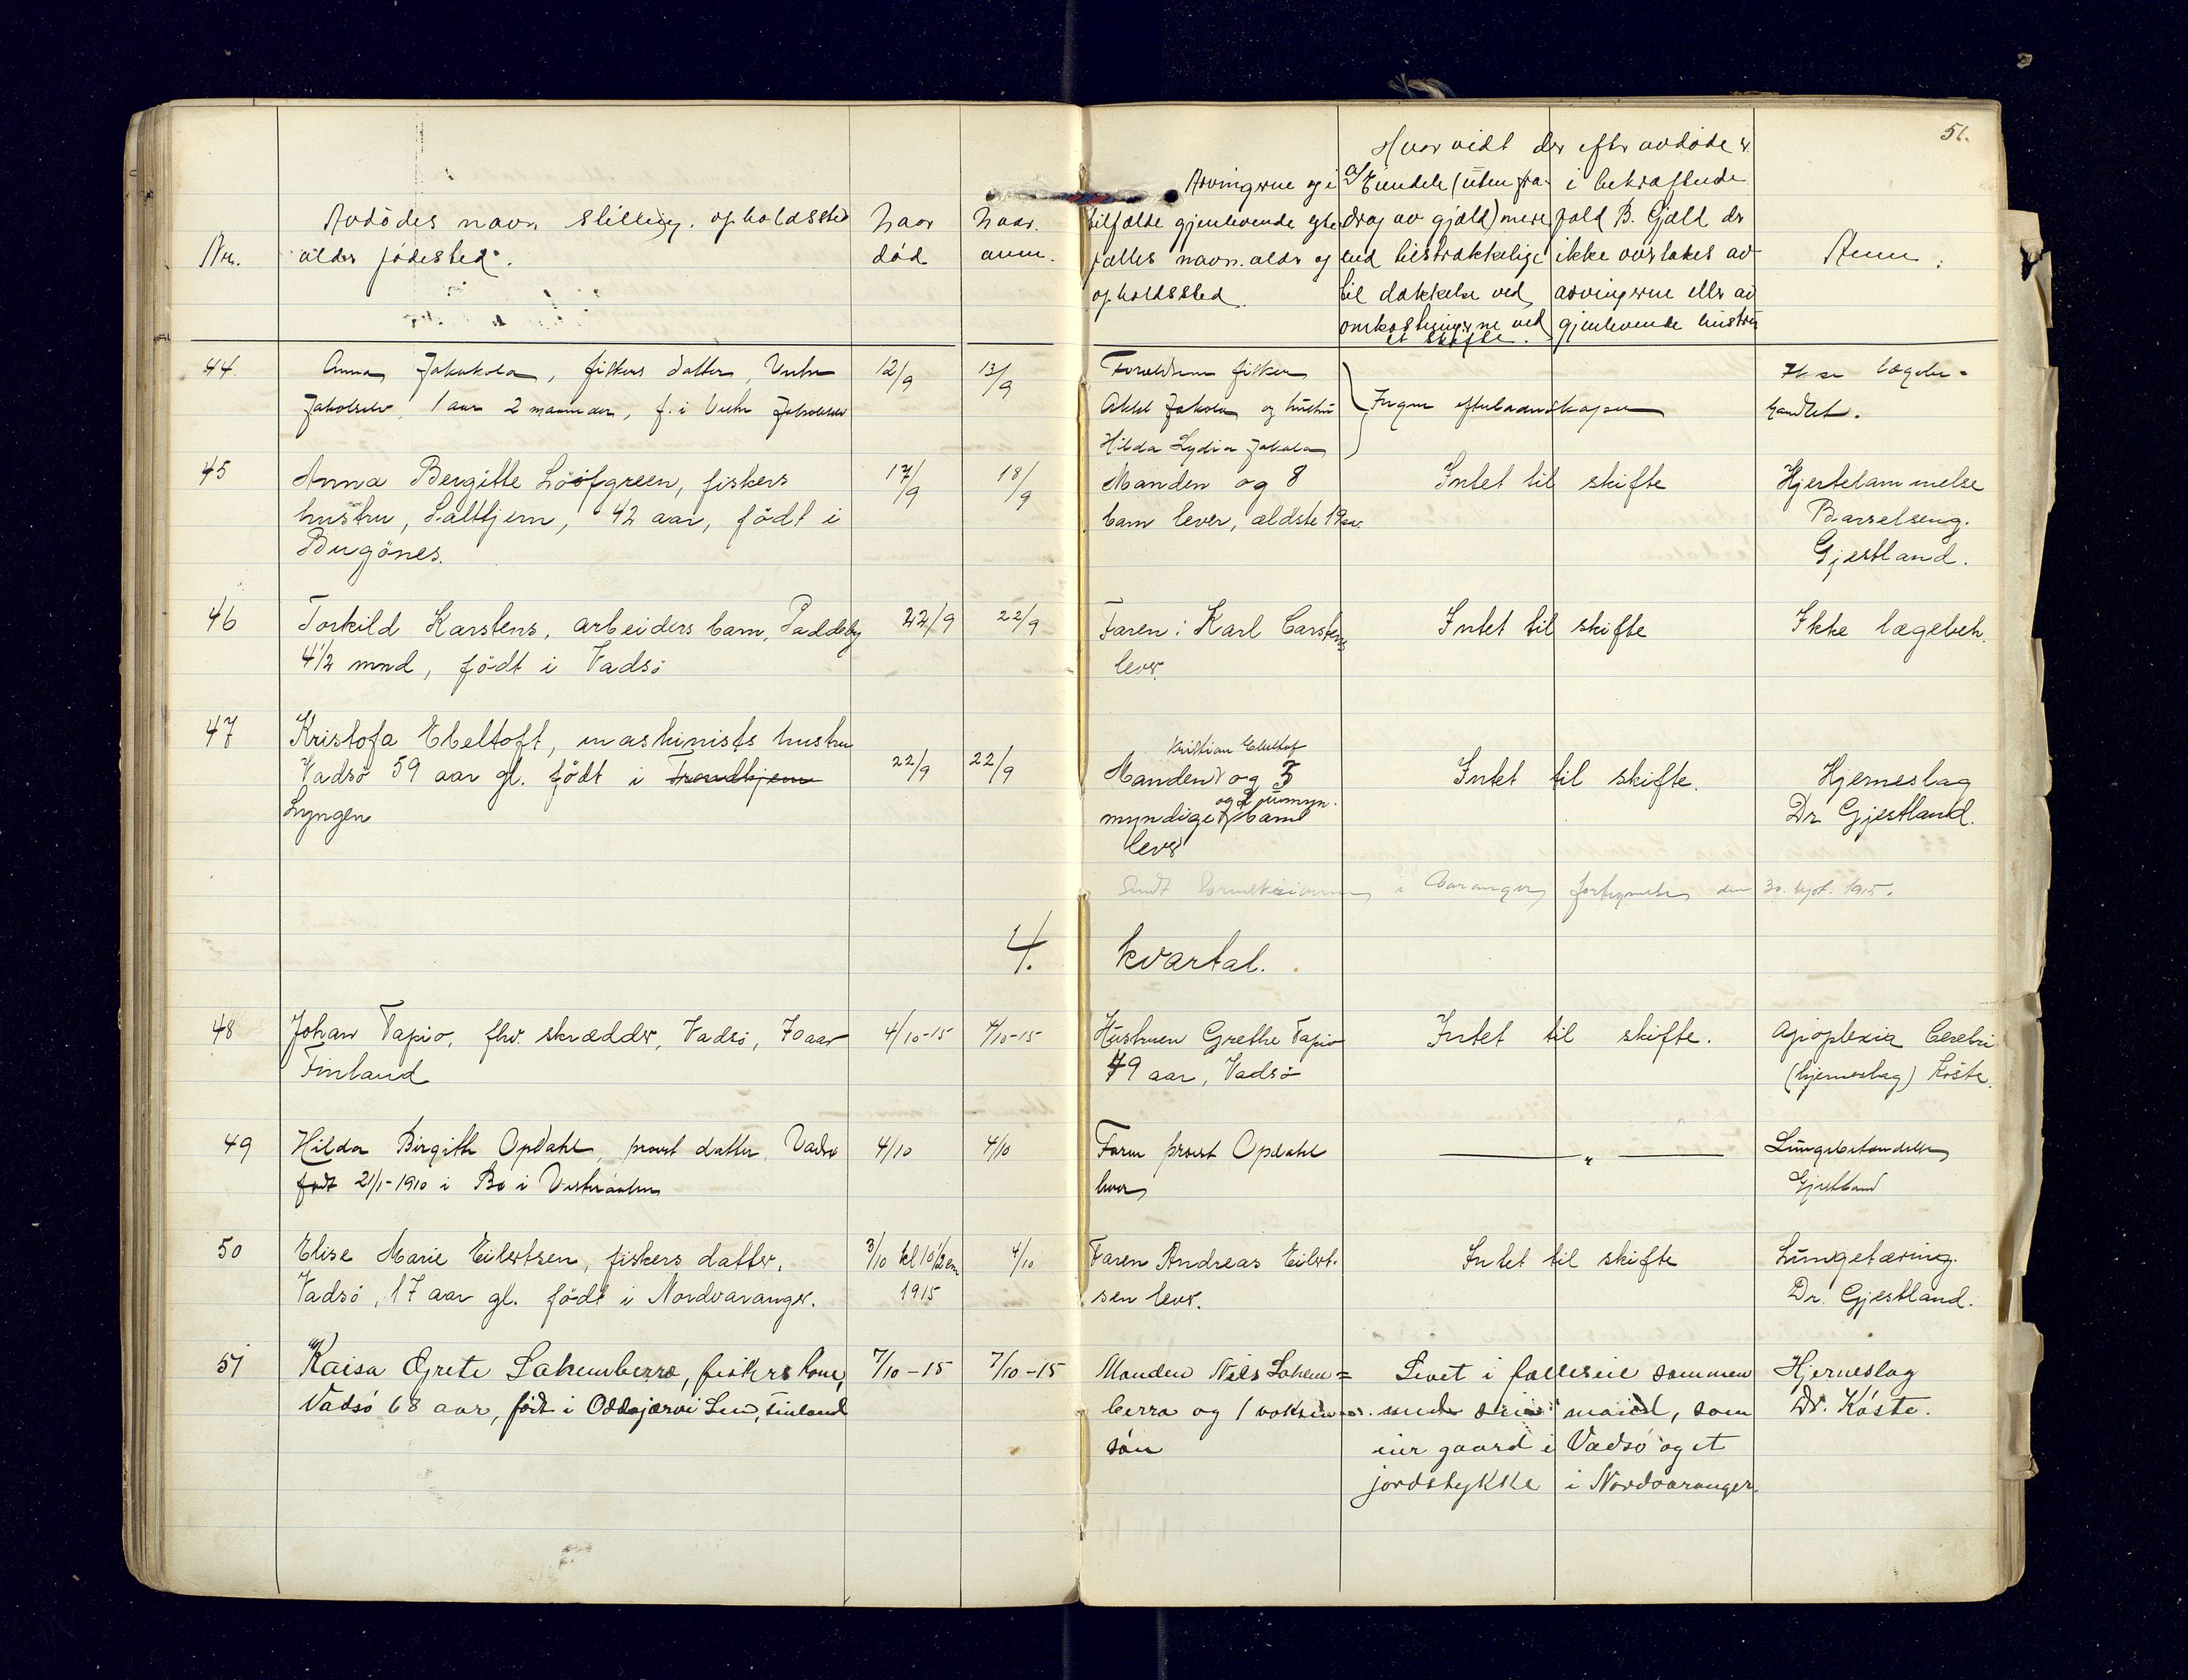 51.
Nr.
Avdödes navn stilling, opholdssted
alder födested.
Naar
död
Naar
anm.
Arvingerne og i
tilfælde gjenlevende egte-
fælles navn, alder og
opholdssted
Hvorvidt der efter avdöde er
a/ Eiendele (uten fra-
drag av gjæld) mere
end tilstrækkelige
til dækkelse ved
omkostningerne ved
et skifte.
i bekræftende
fald B. Gjæld der
ikke overtakes av
arvingerne eller av
gjenlevende hustru
Anm.
44
Anna Jakakola, fiskers datter, Vestre
Jakobselv, 1 aar 2 maaneder, f. i Vestre Jakobselv
12/9
13/9
Forældrene fisker
Jakola og hustru
Hilda Lydia Jakola
Ingen efterladenskaper
Ikke lægebe-
handlet.
45
Anna Bergitte Löifgreen, fiskers
hustru, Saltkjern, 42 aar, födt i
Bugönes.
17/9
18/9
Manden og 8
barn lever, ældste 19 aar.
Intet til skifte
Hjertelammelse
Barselseng.
Gjestland.
46
Torkild Karstens, arbeiders barn, Paddeby
4 1/2 mnd, födt i Vadsö
22/9
22/9
Faren: Karl Carstens
lever.
Intet til skifte
Ikke lægebeh.
47
Kristofa Ebeltoft, maskinists hustru
Vadsö 59 aar gl. födt i Trondhjem
Lyngen
22/9
22/9
Kristian Ebeltof
Manden og 3
og 1 umyn.
myndige barn
lever
Intet til skifte.
Hjerneslag
Dr Gjestland.
Sendt sorenskriveren i Varanger fortegnelse den 30. sept. 1915.
4. kvartal.
48
Johan Tapio, fhv. skrædder, Vadsö, 70 aar
Finland
4/10-15
4/10-15
Hustruen Grethe Tapio
79 aar, Vadsö
Intet til skifte.
Apoplexia Cerebri
(hjerneslag) Köste.
49
Hilda Birgith Opdahl, provst datter, Vadsö
födt 21/1-1910 i Bö i Vesteraalen
4/10
4/10
Faren provst Opdahl
lever
— " —
Lungebetændelse
Gjestland
50
Elise Marie Eilertsen, fiskers datter,
Vadsö, 17 aar gl. födt i Nordvaranger.
3/10 kl 10 1/2 em
1915
4/10
Faren Andreas Eilert-
sen lever.
Intet til skifte
Lungetæring.
Dr. Gjestland.
51
Kaisa Grete Lakemberra, fiskers kone,
Vadsö 68 aar, födt i Oddojærvi Len, Finland
7/10-15
7/10-15
Manden Nils Lakem=
berra og 1 voksen
sön
Levet i fælleseie sammen
med sin mand, som
eier gaard i Vadsö og et
jordstykke i Nordvaranger.
Hjerneslag
Dr. Köste.